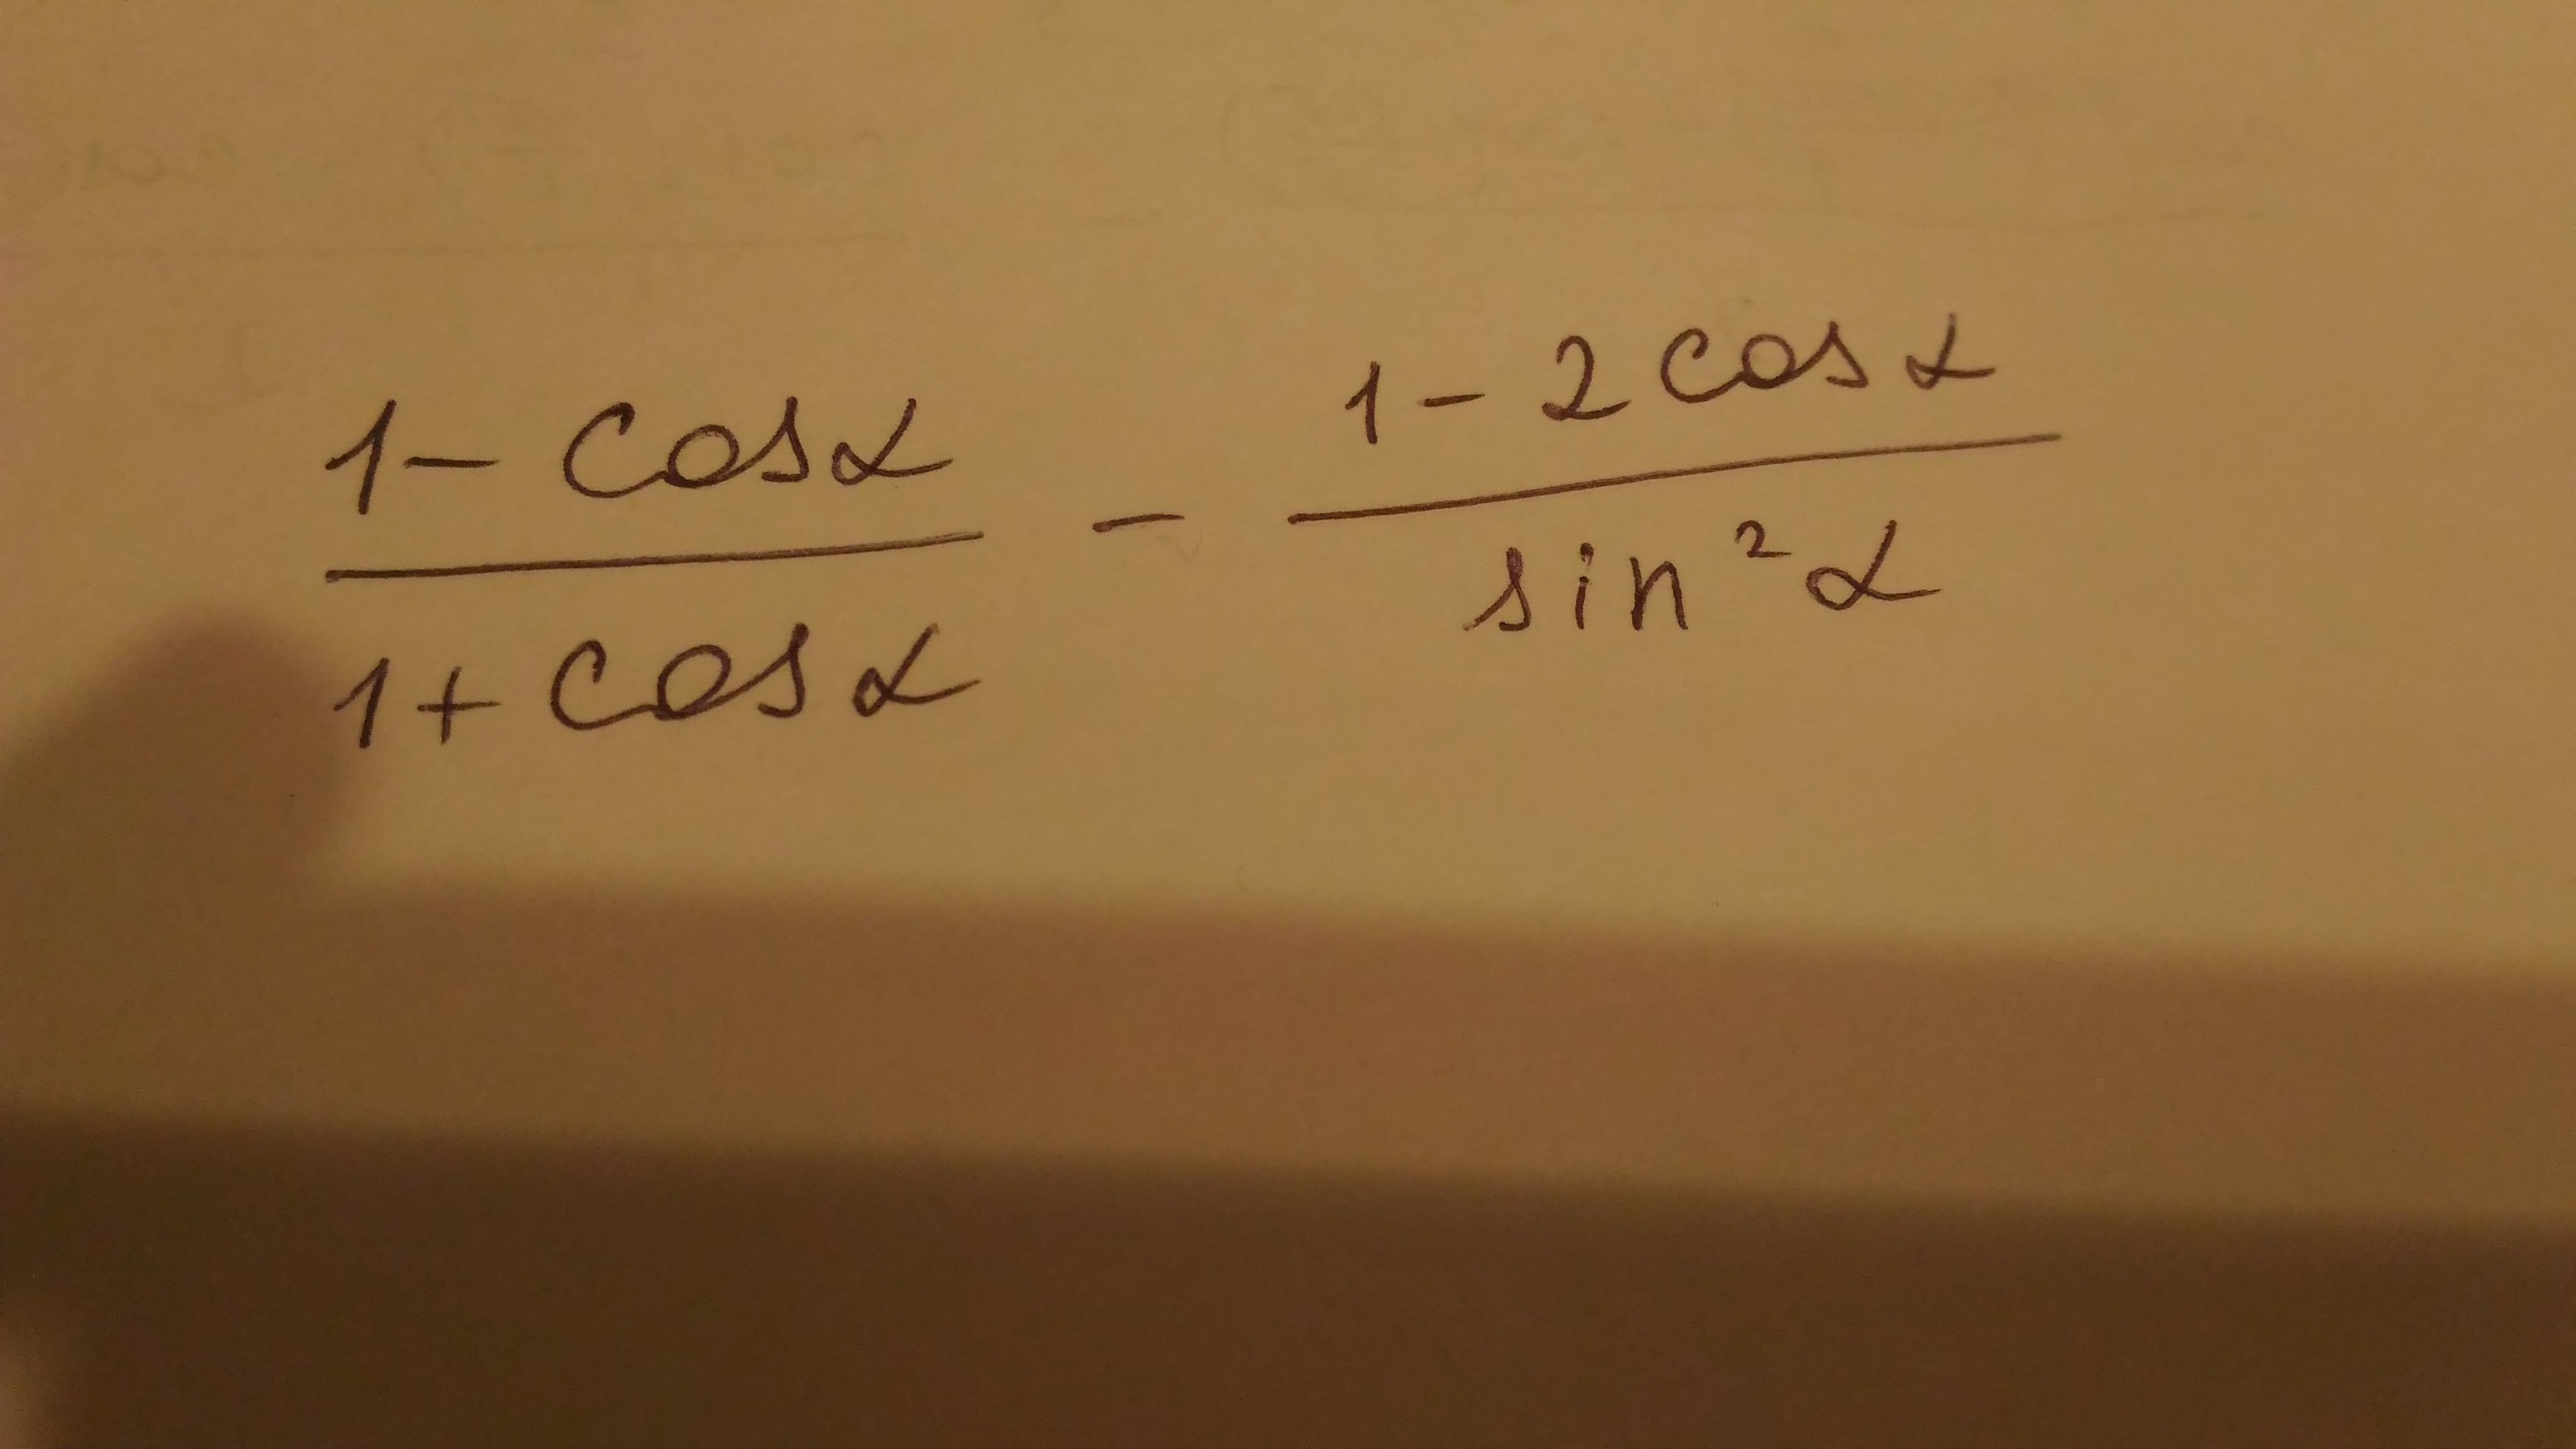 1 - cos α / 1 + cos α - 1 - 2 cos α / sin² α